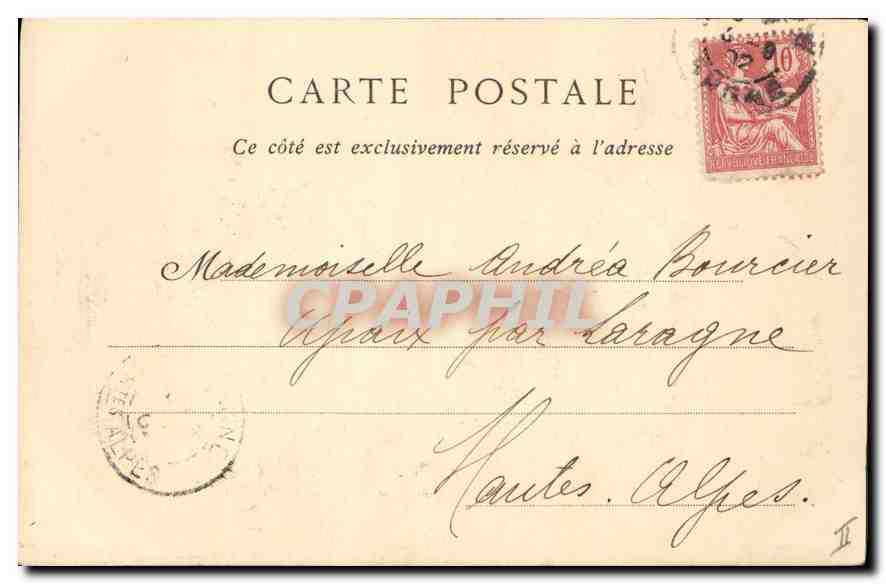 CARTE POSTALE
Ce côté est exclusivement réservé à l'adresse
10
RÉPUBLIQUE FRANÇAISE
Mademoiselle Andréa Bourcier
CPAPHIL
Upaix par Laragne
Hautes. Alpes.
ALPES
II